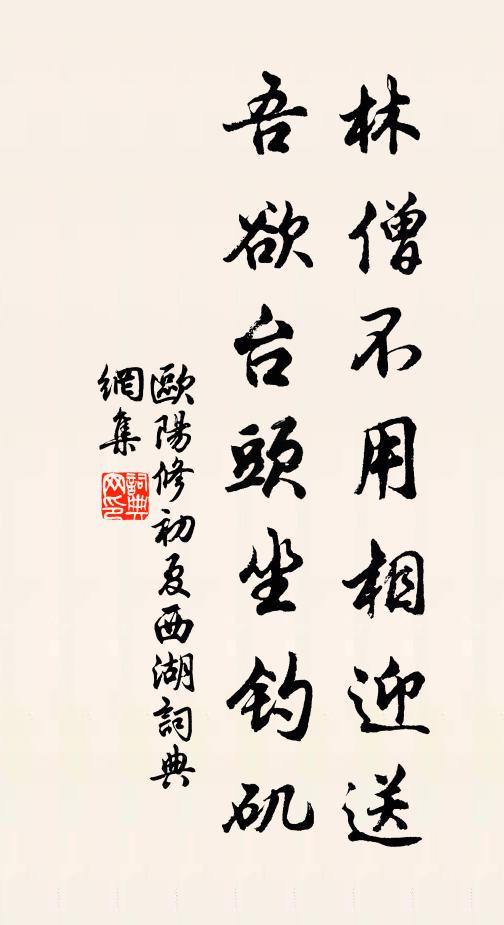 林僧不用相迎送
吾欲台頭坐釣矶
歐陽修初夏西湖詞典
網集
詞典
网印